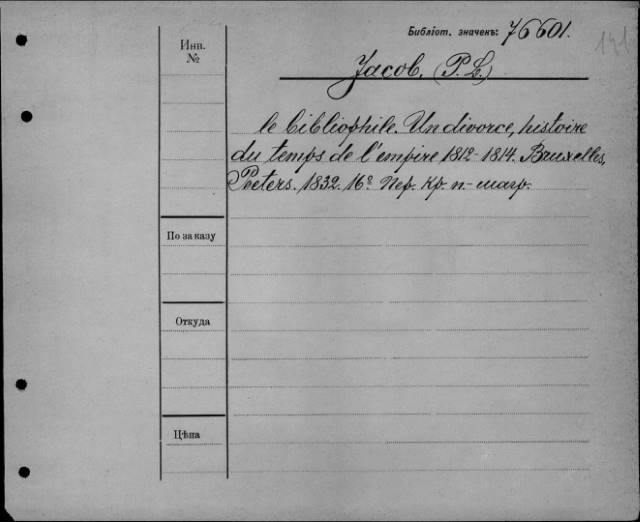 Библіот. значекъ: 76601.
131
Инв. №
Jacob, (P. L.)
le bibliophile. Un divorce, histoire
du temps de l'empire 1812-1814. Bruxelles,
Peeters. 1832. 16º. Пер. Кр. п.-марр.
По заказу
Откуда
Цѣна